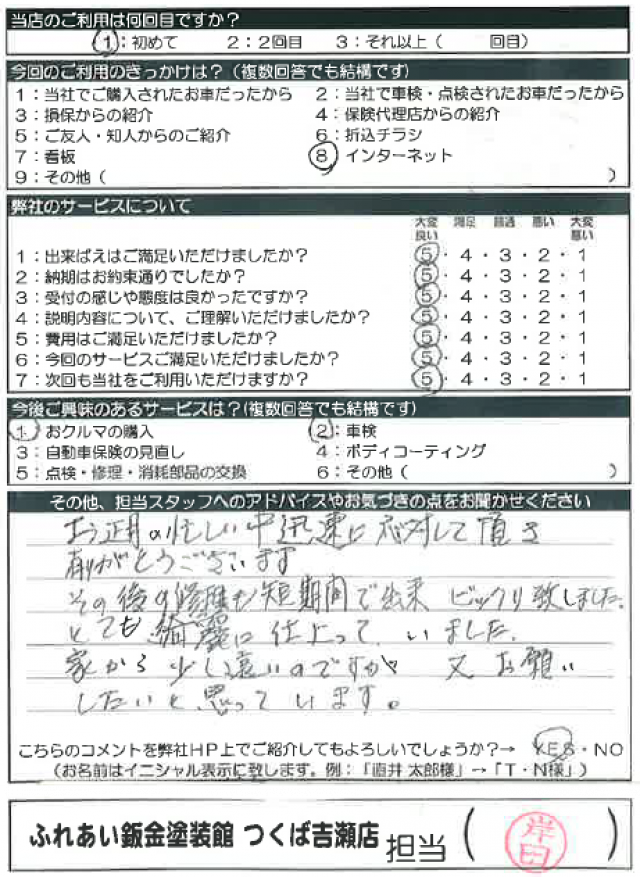 当店のご利用は何回目ですか？
1：初めて　2：2回目　3：それ以上（　　回目）
今回のご利用のきっかけは？（複数回答でも結構です）
1：当社でご購入されたお車だったから　2：当社で車検・点検されたお車だったから
3：損保からの紹介　4：保険代理店からの紹介
5：ご友人・知人からのご紹介　6：折込チラシ
7：看板　8：インターネット
9：その他（　　）
弊社のサービスについて
大変良い　満足　普通　悪い　大変悪い
1：出来ばえはご満足いただけましたか？　5・4・3・2・1
2：納期はお約束通りでしたか？　5・4・3・2・1
3：受付の感じや態度は良かったですか？　5・4・3・2・1
4：説明内容について、ご理解いただけましたか？　5・4・3・2・1
5：費用はご満足いただけましたか？　5・4・3・2・1
6：今回のサービスご満足いただけましたか？　5・4・3・2・1
7：次回も当社をご利用いただけますか？　5・4・3・2・1
今後ご興味のあるサービスは？（複数回答でも結構です）
1：おクルマの購入　2：車検
3：自動車保険の見直し　4：ボディコーティング
5：点検・修理・消耗部品の交換　6：その他（　　）
その他、担当スタッフへのアドバイスやお気づきの点をお聞かせください
お正月の忙しい中迅速に応対して頂き
有りがとうございます
その後の修理も短期間で出来 ビックリ致しました。
とても綺麗に仕上って いました。
家から少し遠いのですが 又お願い
したいと思って います。
こちらのコメントを弊社HP上でご紹介してもよろしいでしょうか？→ YES・NO
（お名前はイニシャル表示に致します。例：「直井 太郎様」→「T・N様」）
ふれあい鈑金塗装館 つくば吉瀬店 担当（岸田）